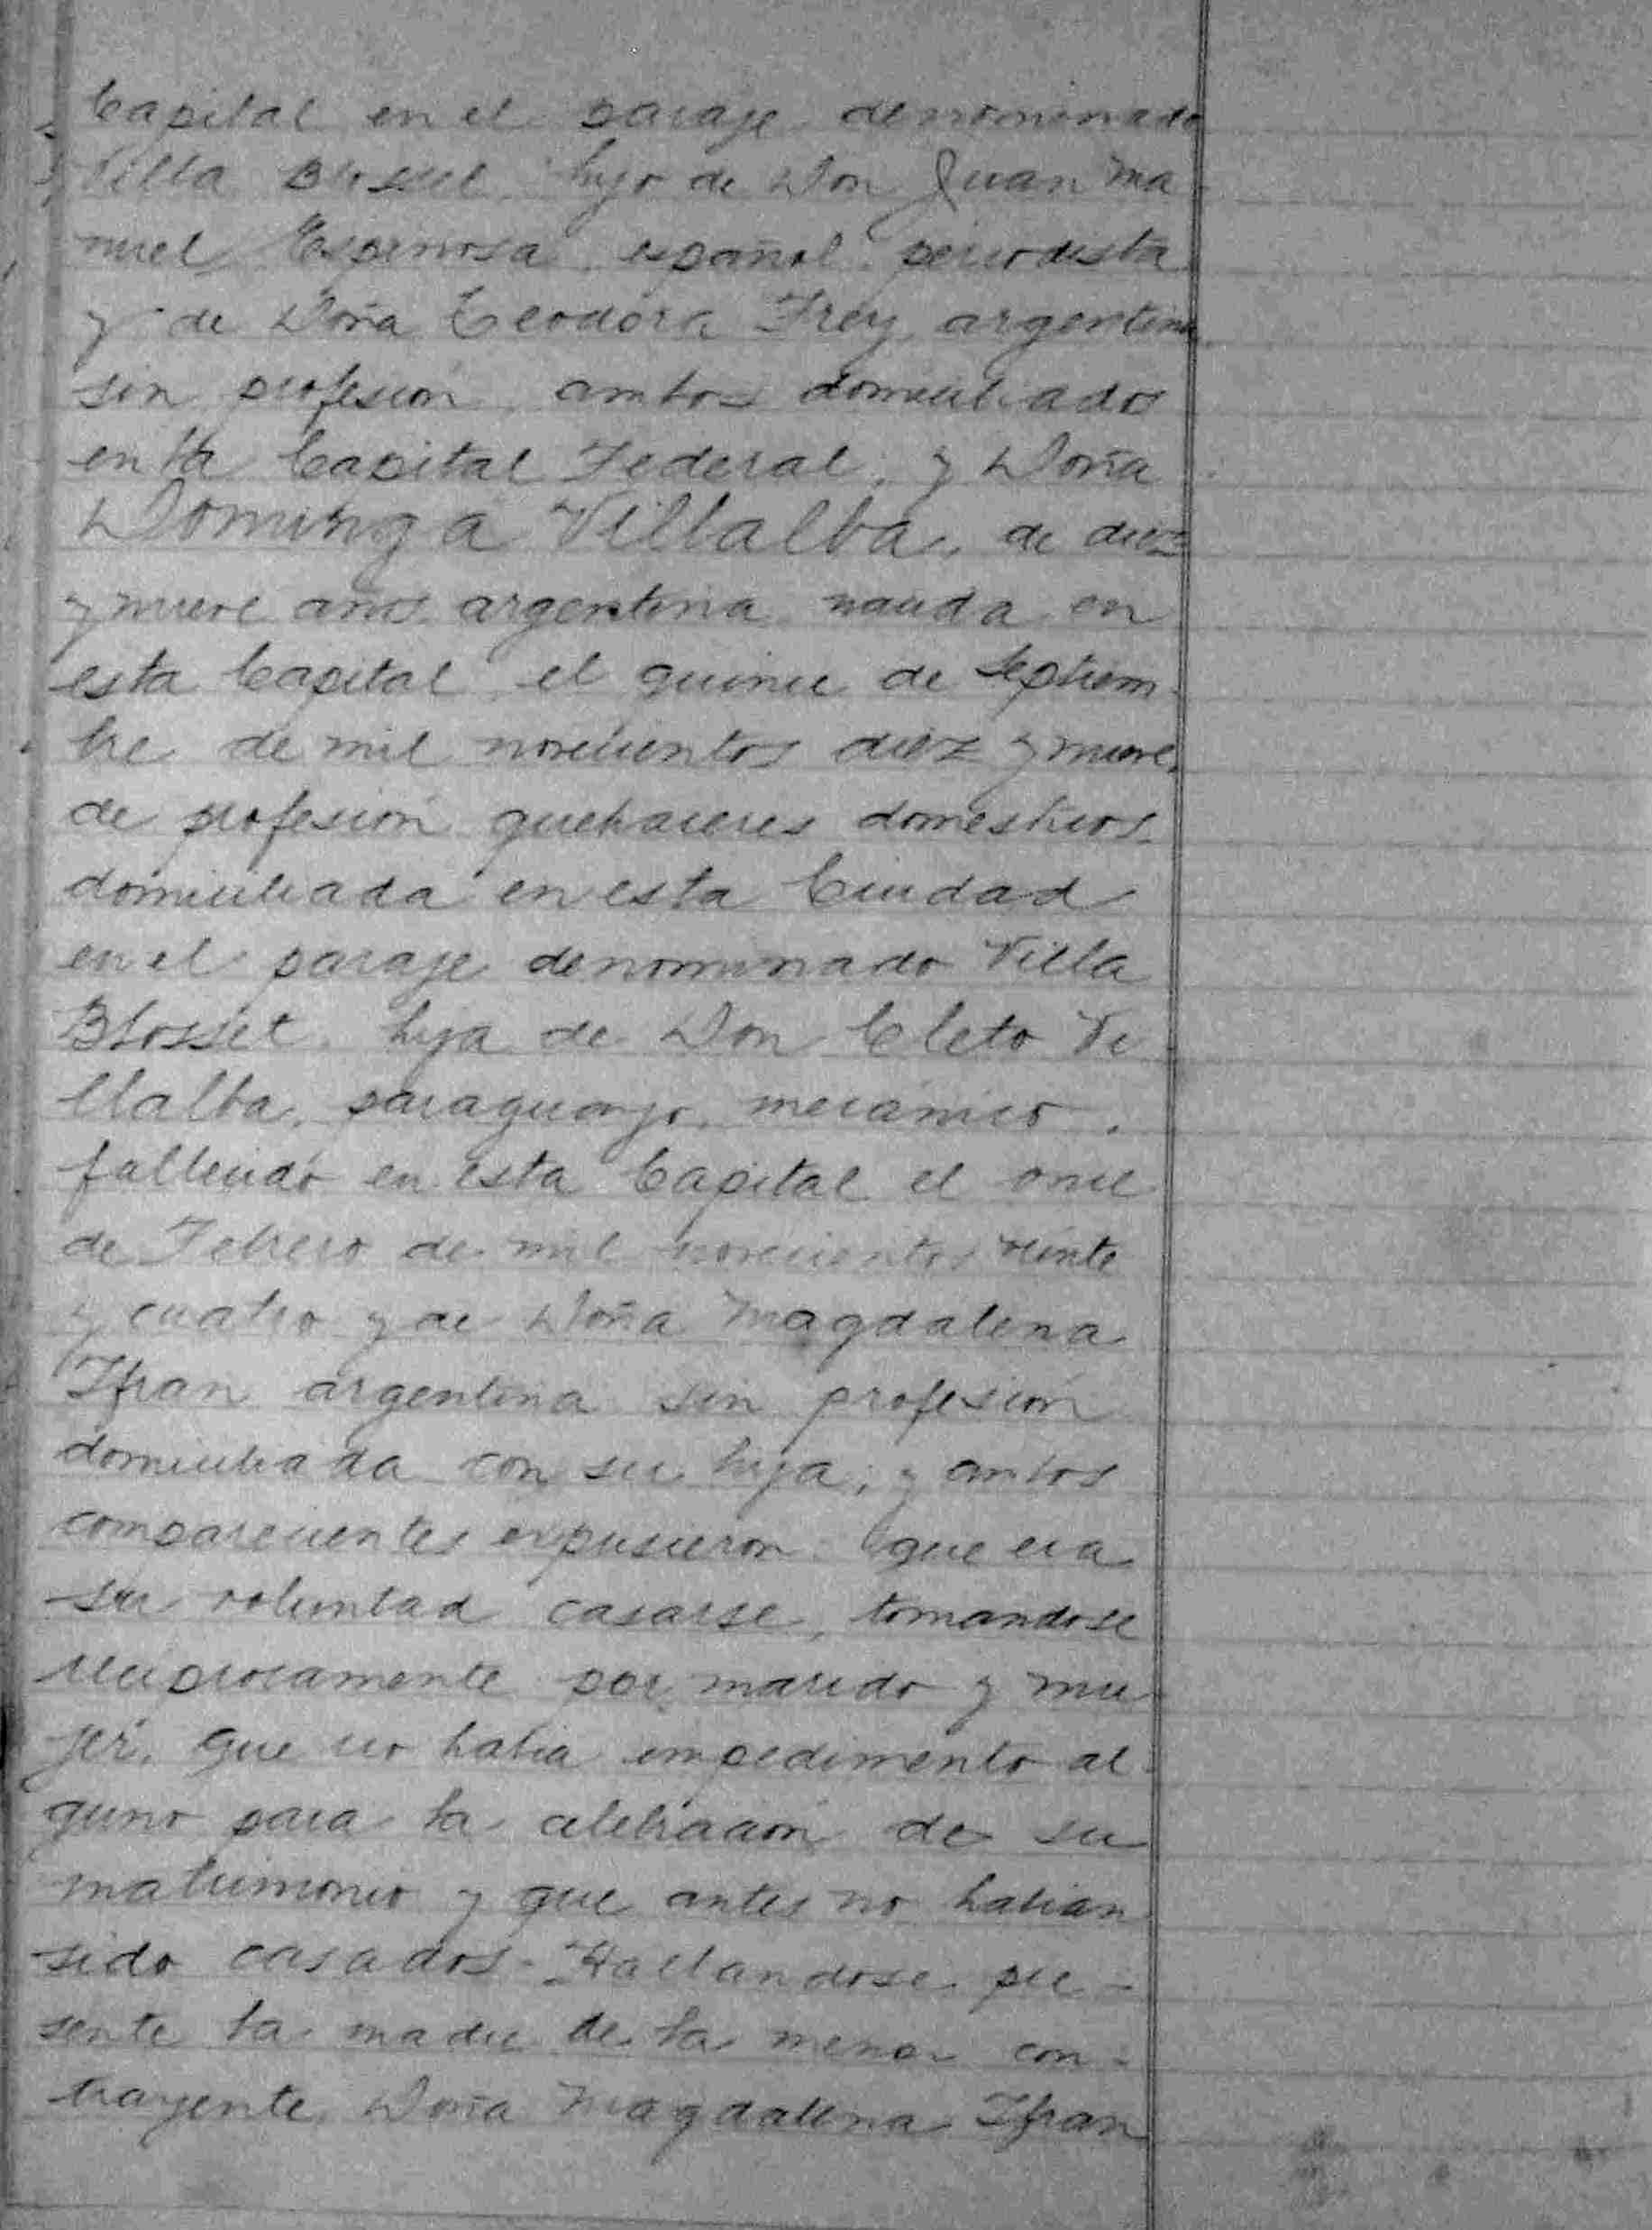 Capital en el paraje denominado
Villa Blosset, hijo de Don Juan Ma-
nuel Espinosa, español periodista
y de Doña Teodora Frey, argentina
sin profesión, ambos domiciliados
en la Capital Federal, y Doña
Dominga Villalba, de diez
y nueve años, argentina, nacida en
esta Capital el quince de Septiem-
bre de mil novecientos diez y nueve,
de profesión quehaceres domesticos,
domiciliada en esta Ciudad
en el paraje denominado Villa
Blosset, hija de Don Cleto Vi-
llalba, paraguayo, mecánico,
fallecido en esta Capital el once
de Febrero de mil novecientos veinte
y cuatro y de Doña Magdalena
Ifran argentina sin profesión
domiciliada con su hija; y ambos
comparecientes expusieron: que era
su voluntad casarse, tomandose
reciprocamente por marido y mu-
jer, que no habia impedimento al-
guno para la celebración de su
matrimonio y que antes no habian
sido casados- Hallandose pre-
sente la madre de la menor con-
trayente, Doña Magdalena Ifran